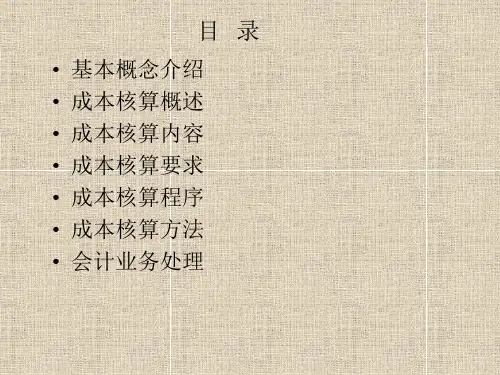 目 录
• 基本概念介绍
• 成本核算概述
• 成本核算内容
• 成本核算要求
• 成本核算程序
• 成本核算方法
• 会计业务处理